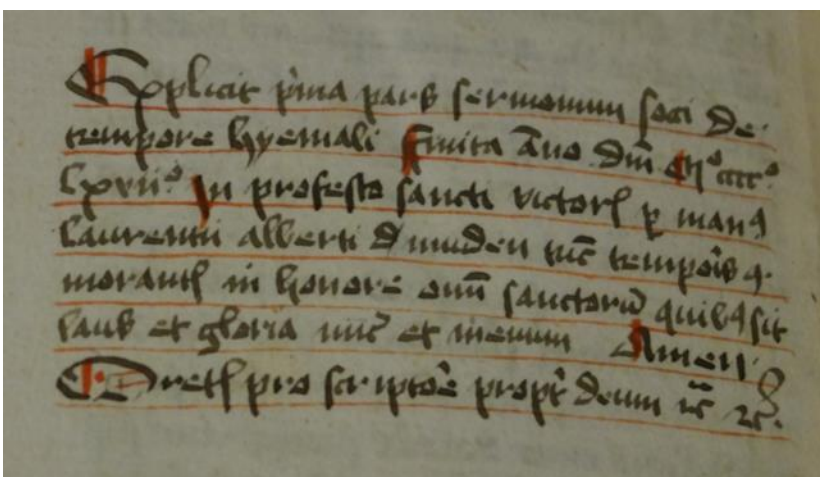 Explicit p̄ma pars sermonum soci de
tempore hyemali finita Āno dn̄i M°cccc°
lxvii° In profesto sancti victorꝭ ꝑ manꝰ
laurentii alberti d' muden tūc tempoꝝ
morantꝭ in honore om̄i sanctorū quibꝰ sit
laus et gloria nūc et in euum Amen
Oretꝭ pro scriptōe propt̄ deum